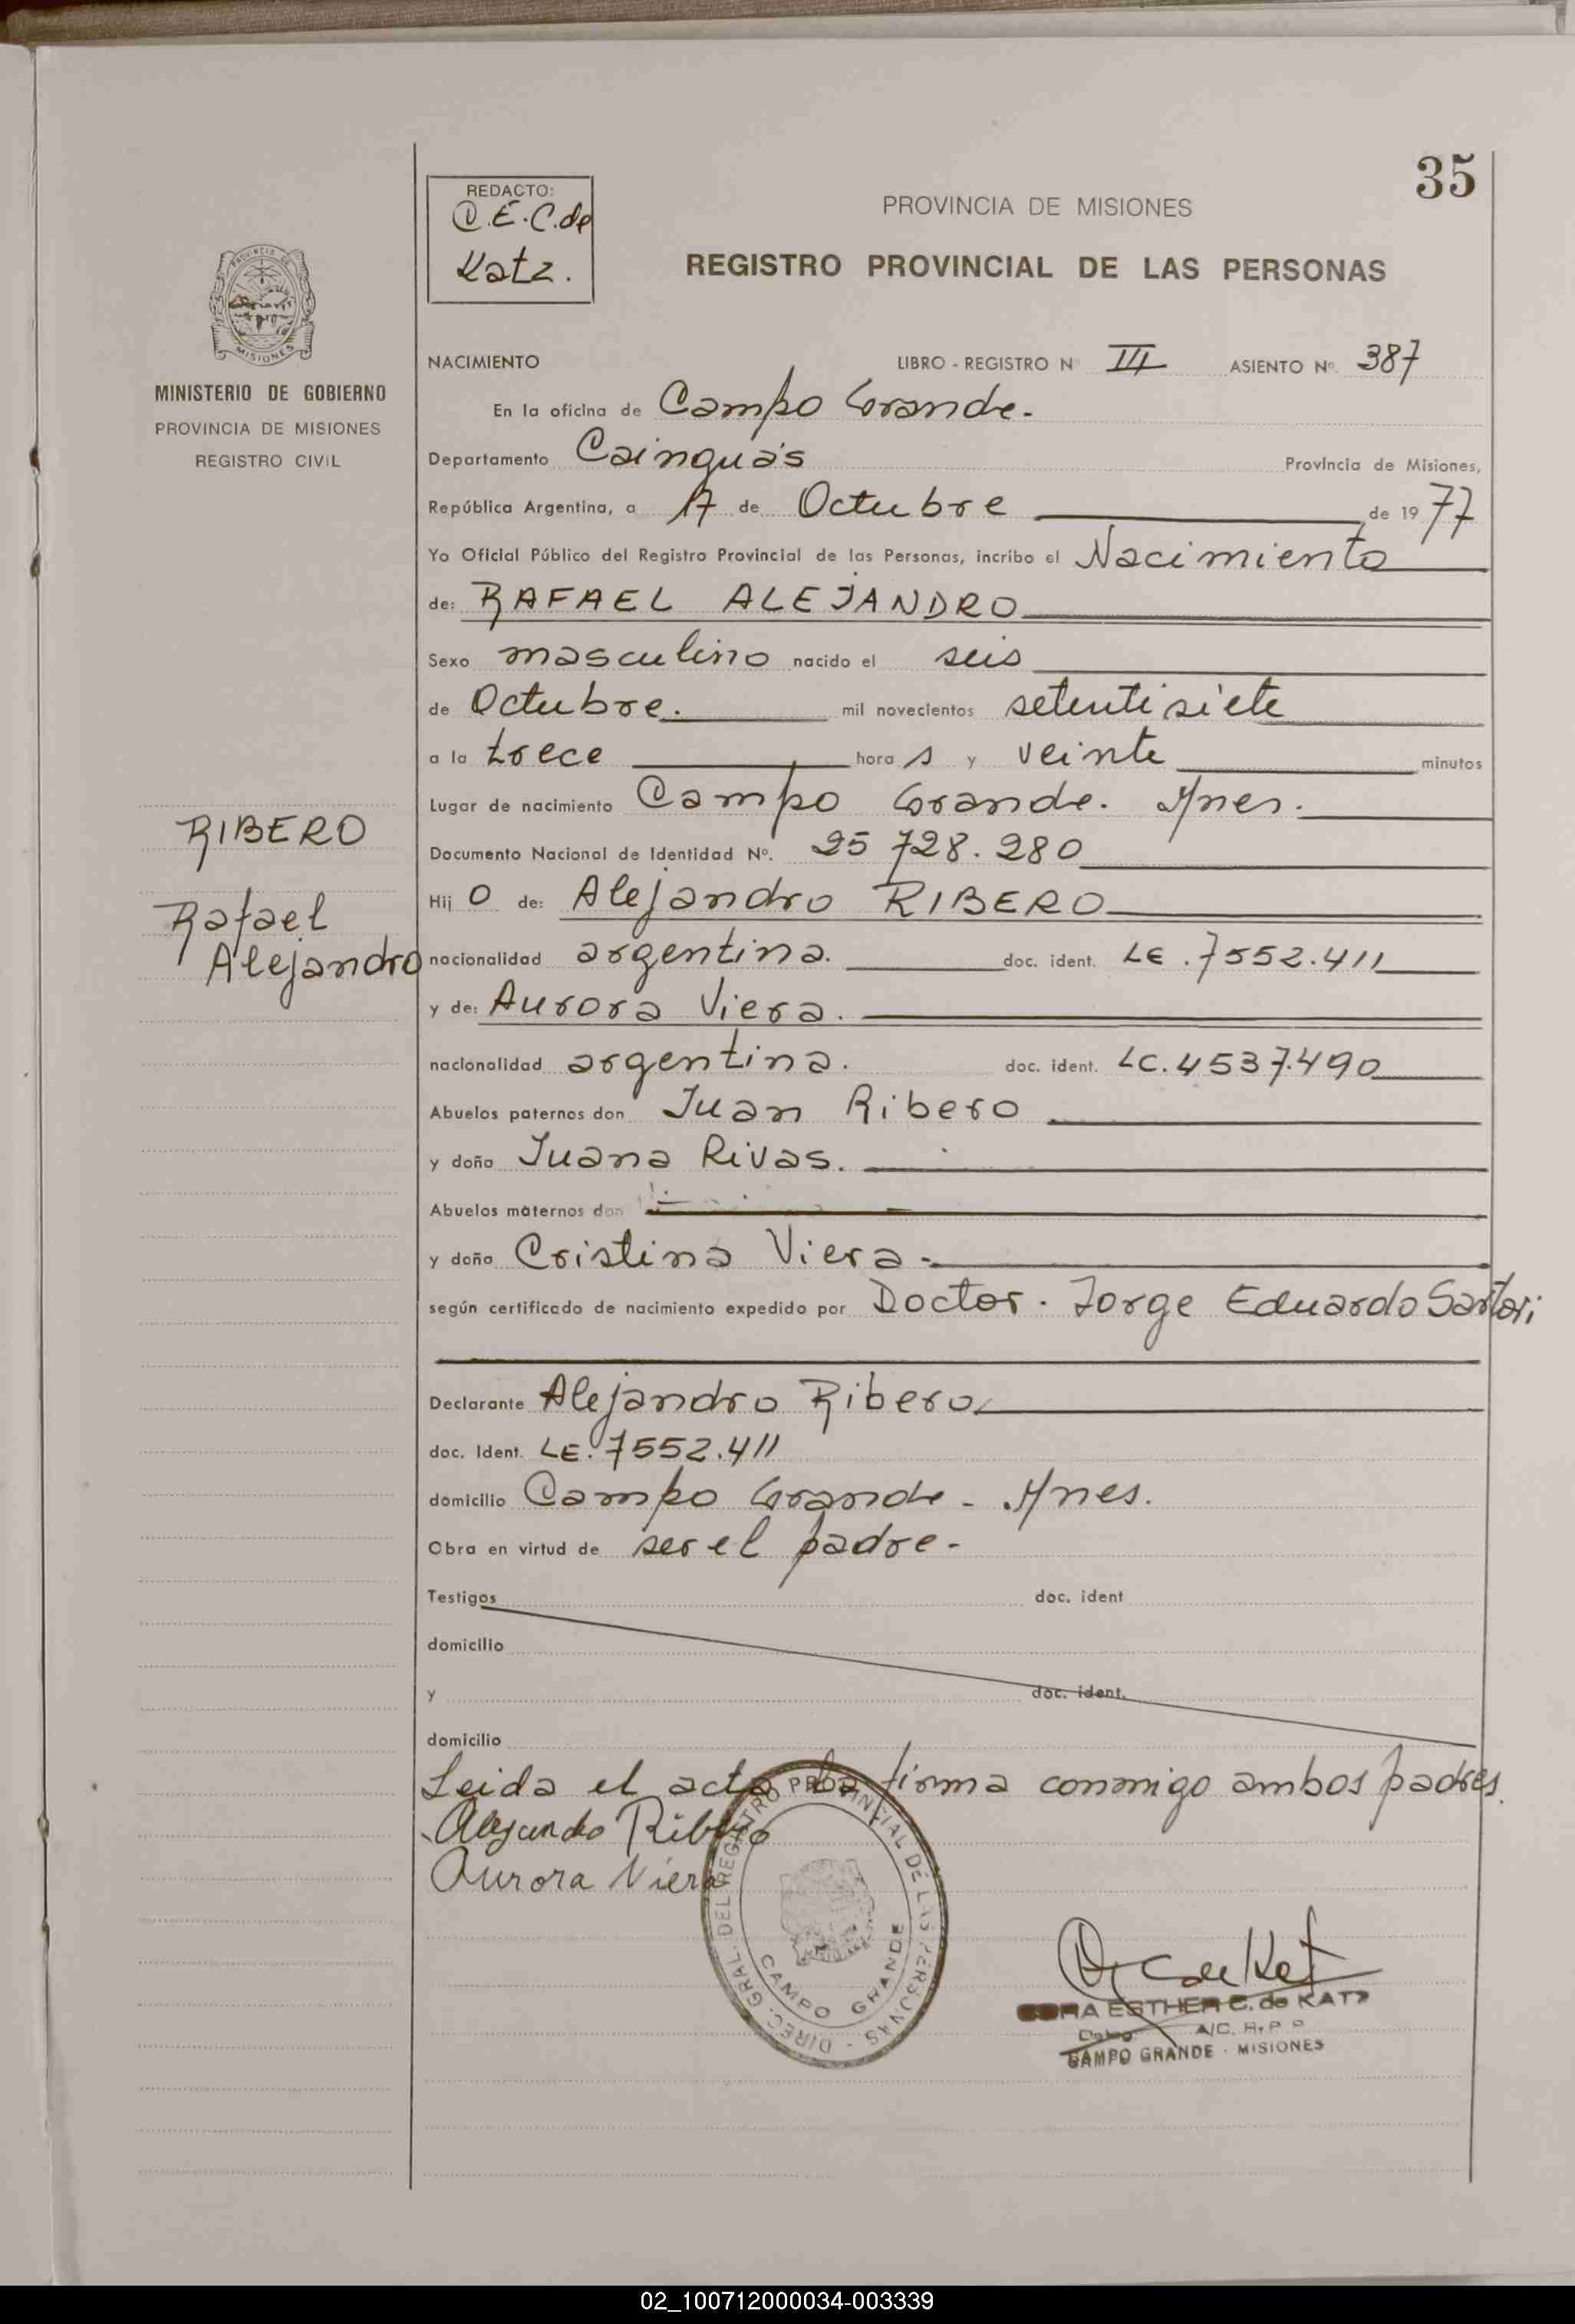 35
REDACTO:
O.E.C.de
Katz.
PROVINCIA DE MISIONES
REGISTRO PROVINCIAL DE LAS PERSONAS
PROVINCIA DE
MISIONES
MINISTERIO DE GOBIERNO
PROVINCIA DE MISIONES
REGISTRO CIVIL
NACIMIENTO LIBRO - REGISTRO N III ASIENTO Nº. 387
En la oficina de Campo Grande.
Departamento Cainguás Provincia de Misiones,
República Argentina, a 17 de Octubre de 1977
Yo Oficial Público del Registro Provincial de las Personas, incribo el Nacimiento
de: RAFAEL ALEJANDRO
Sexo masculino nacido el seis
de Octubre. mil novecientos setentisiete
a la trece hora s y veinte minutos
Lugar de nacimiento Campo Grande. Mnes.
RIBERO
Rafael
Alejandro
Documento Nacional de Identidad Nº. 25 728.280
Hij o de: Alejandro RIBERO
nacionalidad argentina. doc. ident. LE.7552.411
y de: Aurora Viera.
nacionalidad argentina. doc. ident. LC.4537.490
Abuelos paternos don Juan Ribero
y doña Juana Rivas.
Abuelos maternos don
y doña Cristina Viera.
según certificado de nacimiento expedido por Doctor. Jorge Eduardo Sartori
Declarante Alejandro Ribero
doc. Ident. LE.7552.411
domicilio Campo Grande - Mnes.
Obra en virtud de ser el padre.
Testigos doc. ident
domicilio
y doc. ident.
domicilio
Leida el acta la firma conmigo ambos padres.
Alejandro Ribero
Aurora Viera
DIREC. GRAL. DEL REGISTRO PROVINCIAL DE LAS PERSONAS
CAMPO GRANDE
ESTHER C. de KATZ
A/C. R. P. P
CAMPO GRANDE - MISIONES
02_100712000034-003339